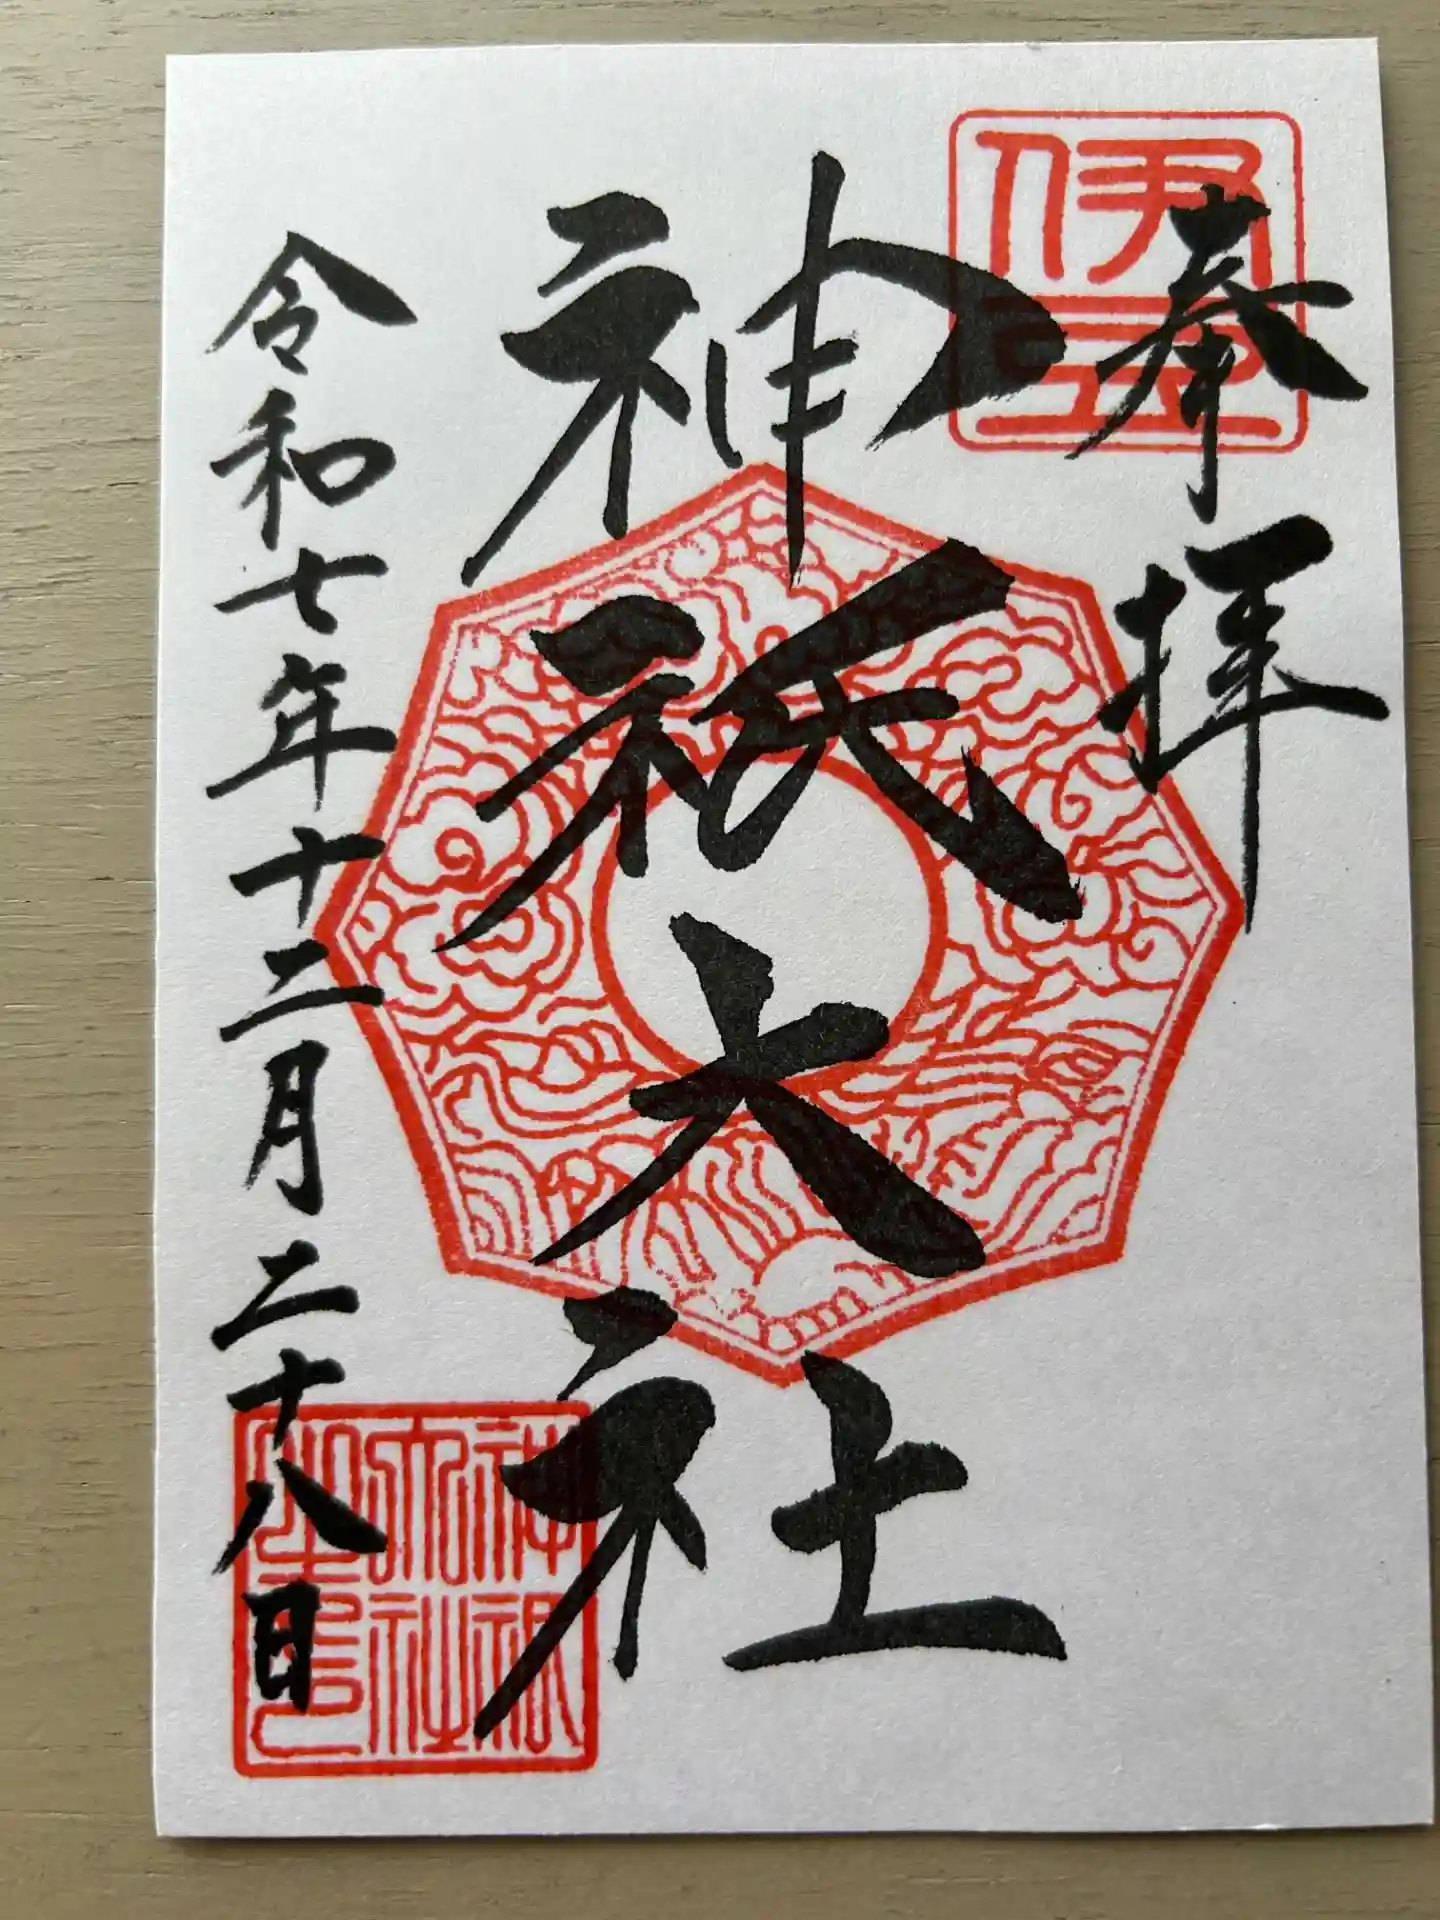 伊豆
奉拝
神祇大社
令和七年十二月二十八日
神祇
大社
之印